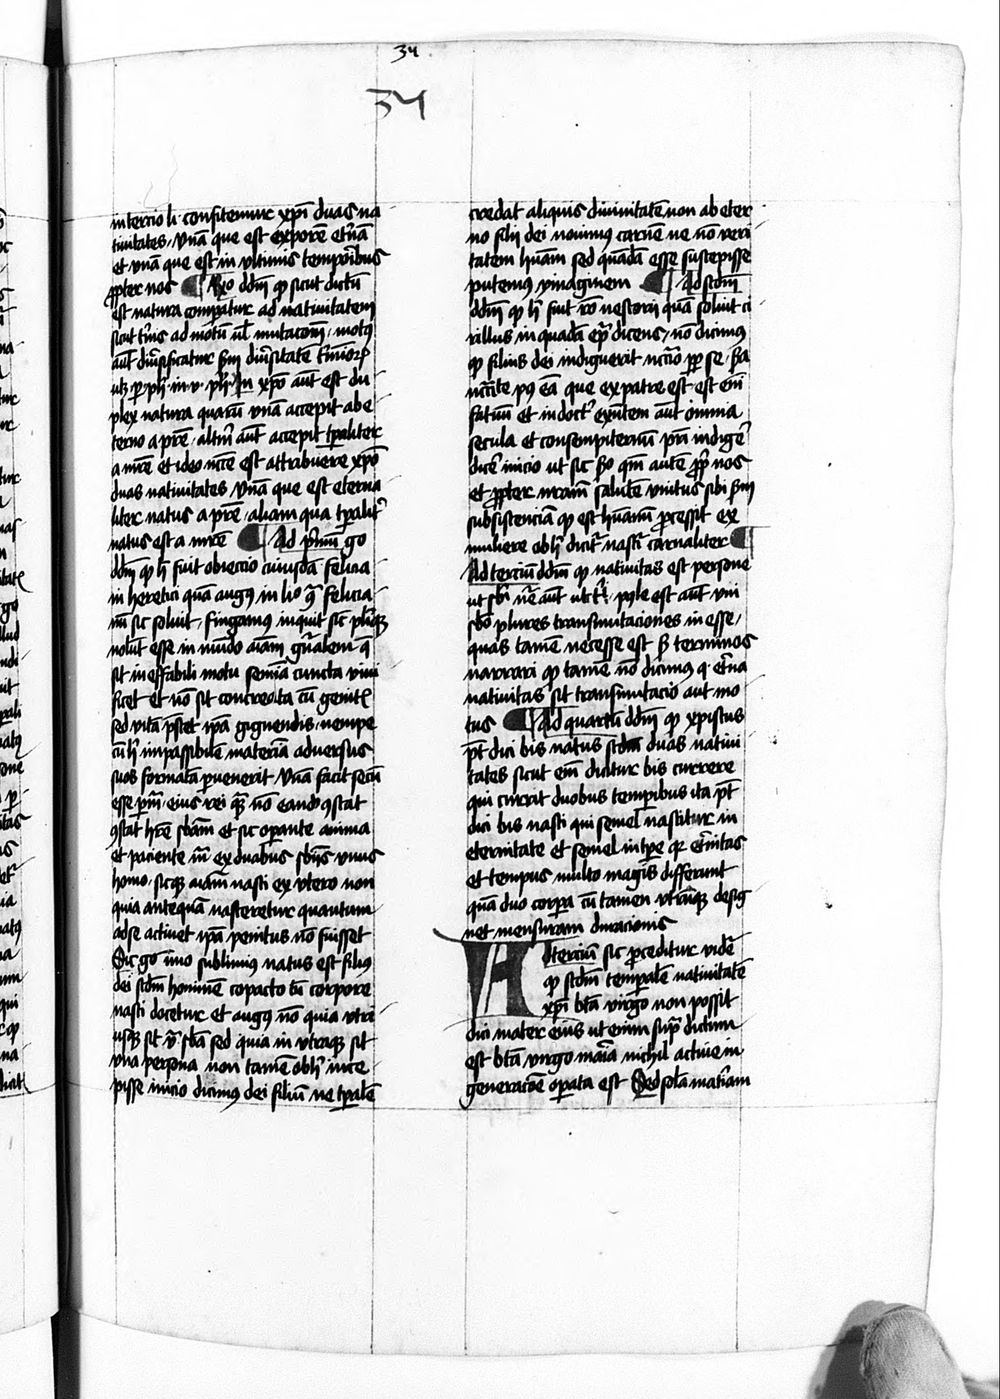 34
34
in tercio li· confitemur xp̄i duas na
tiuitates· vnā que est ex pr̄e et̄nā
et vnā que est in vltimis temporibus
ꝓpter nos ¶ Rn̄o dd̄m ꝙ sicut dictū
est natura comparatur ad natiuitatem
sicut t̄minus ad motū ul̄ mutacōm· motus
aūt diu̓sificatur s̄m diu̓sitatē t̄minorꝝ
ut ꝓ· ph̄m in v· ph̄i· In xp̄o aūt est du
plex natura quarū vnā accepit ab e
terno a pr̄e· alt̄am aūt accepit tp̄aliter
a mr̄e et ideo nc̄ce est attribuere xp̄o
duas natiuitates vnā que est eterna
liter natus a pr̄e· aliam qua tp̄alit̄
natus est a mr̄e ¶ Ad p̄mum ḡo
dd̄m ꝙ h̄ fuit obieccio cuiusdā felicia
ni heretici quā augus̄ in lib̄o ꝯ̄a felicia
nū sic soluit· fingamus inquit sic̄ pleriqꝫ
nolūt esse in mūdo aīam gn̄alem q̄
sic ineffabili motu semīa cuncta viui
ficet et nō sit concreata cū genit̄
sed vitā p̄stet ip̄a gignendis· nempe
cū h̄ impassibilē materiā aduersus
suos formatā ꝓuenerit vnā facit secū
esse ꝑsonā· eius rei quā nō eandē ꝯstat
ꝯstat hr̄e sb̄am et sic oꝑante anima
et paciente mā ex duabus sb̄ijs vnus
homo· sicqꝫ aīam nasci ex vtero non
quia antequā nasceretur quantum
ad se actinet ip̄a penitus nō fuisset
Sic ḡo īmo sublimius natus est filius
dei sc̄dm hominē copacto cū corpore
nasci docetur et augus̄ nō quia vtri
usqꝫ sit v̄· sb̄a sed quia in vtraqꝫ sit
vna persona non tamē ob h̄ ince
pisse inicio dicimus dei filiū ne tp̄alē
credat aliquis diuinitatē non ab eter
no filij dei nouimus carnē ne nō veri
tatem hūam sed quādā esse suscepisse
putemus ymaginem ¶ Ad sc̄dm
dd̄m ꝙ h̄ fuit rō nestorij quā soluit ci
rillus in quadā ep̄la dicens· nō dicimus
ꝙ filius dei indiguerit nc̄cīo ꝓp̄ se sc̄da
natiuitate p9 eā que ex patre est· est eīm
fatuū et indoct̄ existentem ante omnia
secula et consempiternū pr̄i indigē̄
dic̄ inicio ut sic sc̄do qm̄ autē ꝓp̄ nos
et ꝓpter nr̄am salutē vnitus sibi s̄m
subsistenciā ꝙ est hūanū ꝓcessit ex
muliere ob h̄ dicit̄ nasci carnaliter ¶
Ad tercium dd̄m ꝙ natiuitas est persone
ut sb̄i nāe aūt ut t̄mini· possibile est aūt vni
sb̄o plures transmutaciones inesse·
quas tamē necesse est s̄m terminos
variari ꝙ tamē nō dicimus q· et̄na
natiuitas sit transmutacio aut mo
tus ¶ Ad quartū dd̄m ꝙ xp̄istus
pōt dici bis natus sc̄dm duas natiui
tates sicut eīm dicitur bis currere
qui currit duobus temporibus ita pōt
dici bis nasci qui semel nascitur in
eternitate et semel in tp̄e qr et̄nitas
et tempus multo magis differunt
quā duo corpora cū tamen vtrūqꝫ desig
net mensuram duracionis
AD tercium sic ꝓceditur videt̄
ꝙ sc̄dm temporalē natiuitatē
xp̄i btā virgo non possit
dici mater eius ut enim sup̄ dictum
est btā virgo maria nichil actiue in
generacōe oꝑata est Sed solā mat̄iam